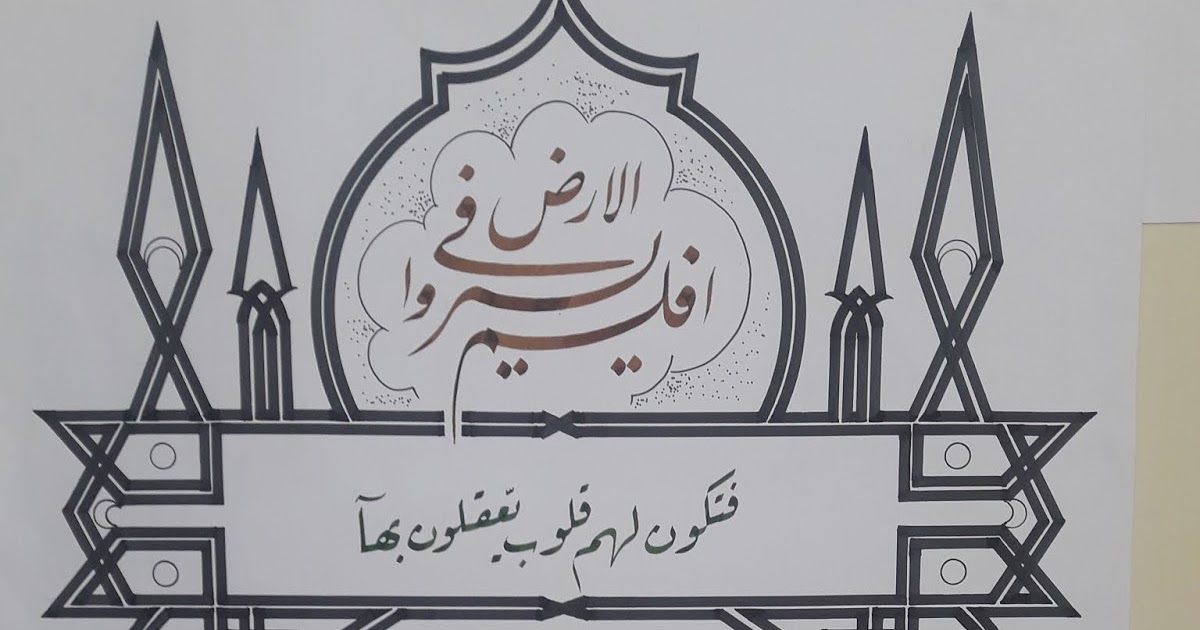 افلم يسيروا فى الارض
فتكون لهم قلوب يعقلون بهآ